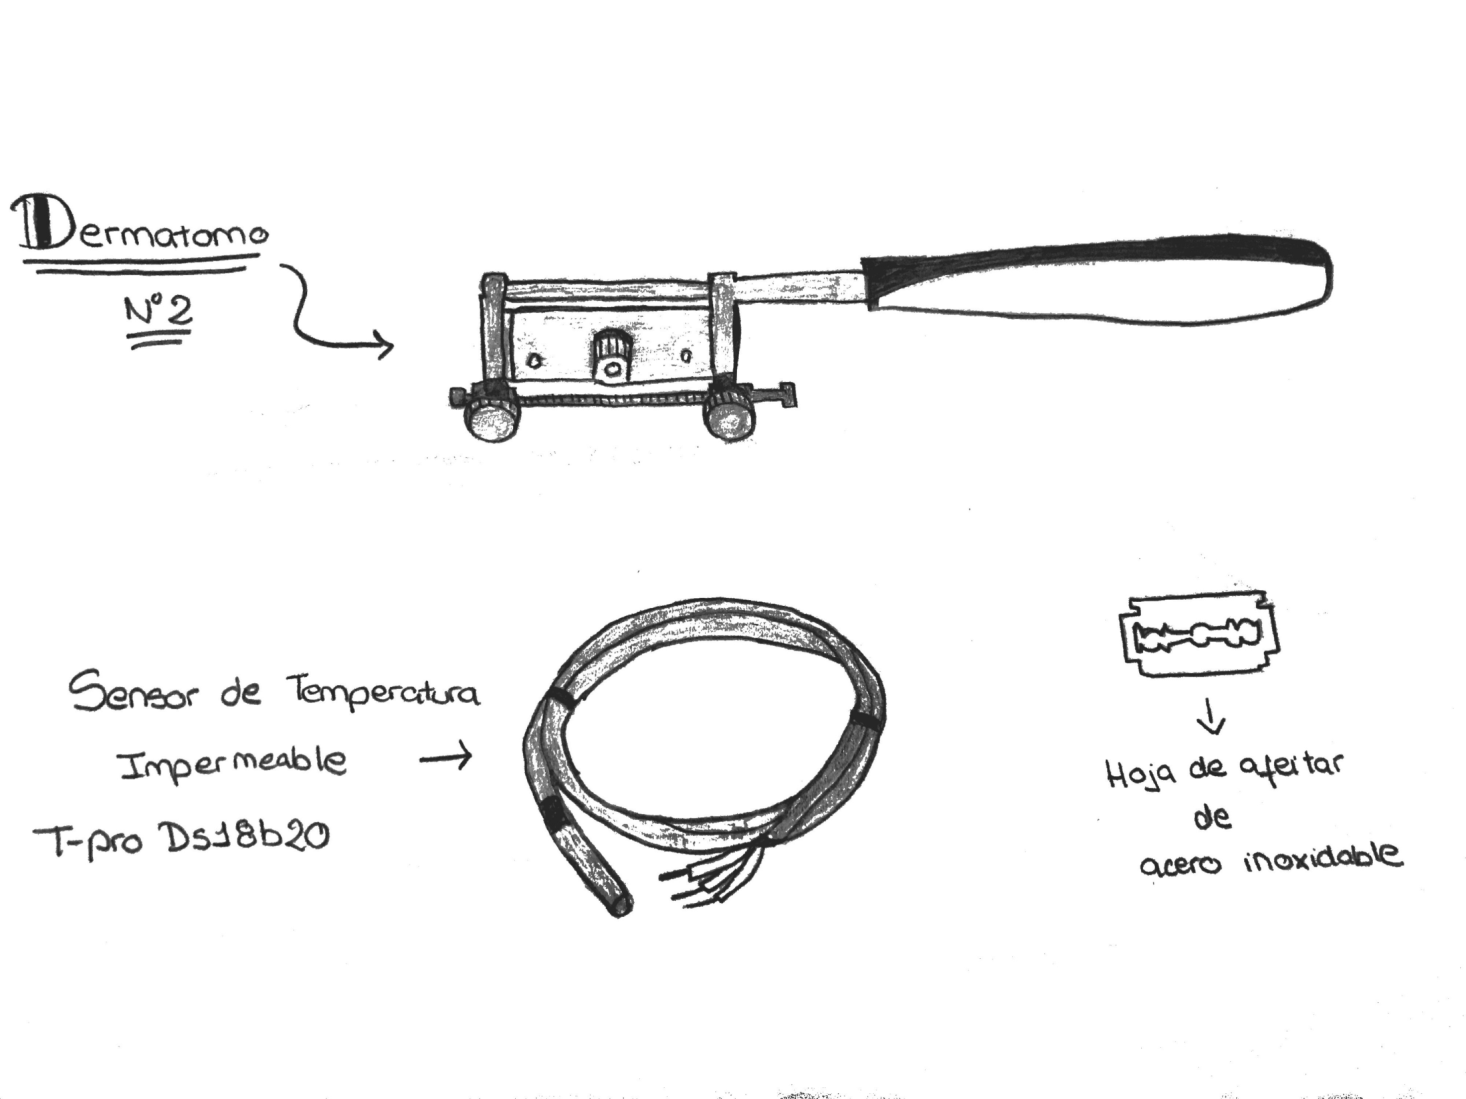 Dermatomo
Nº2
Sensor de Temperatura
Impermeable
T-pro Ds18b20
Hoja de afeitar
de
acero inoxidable